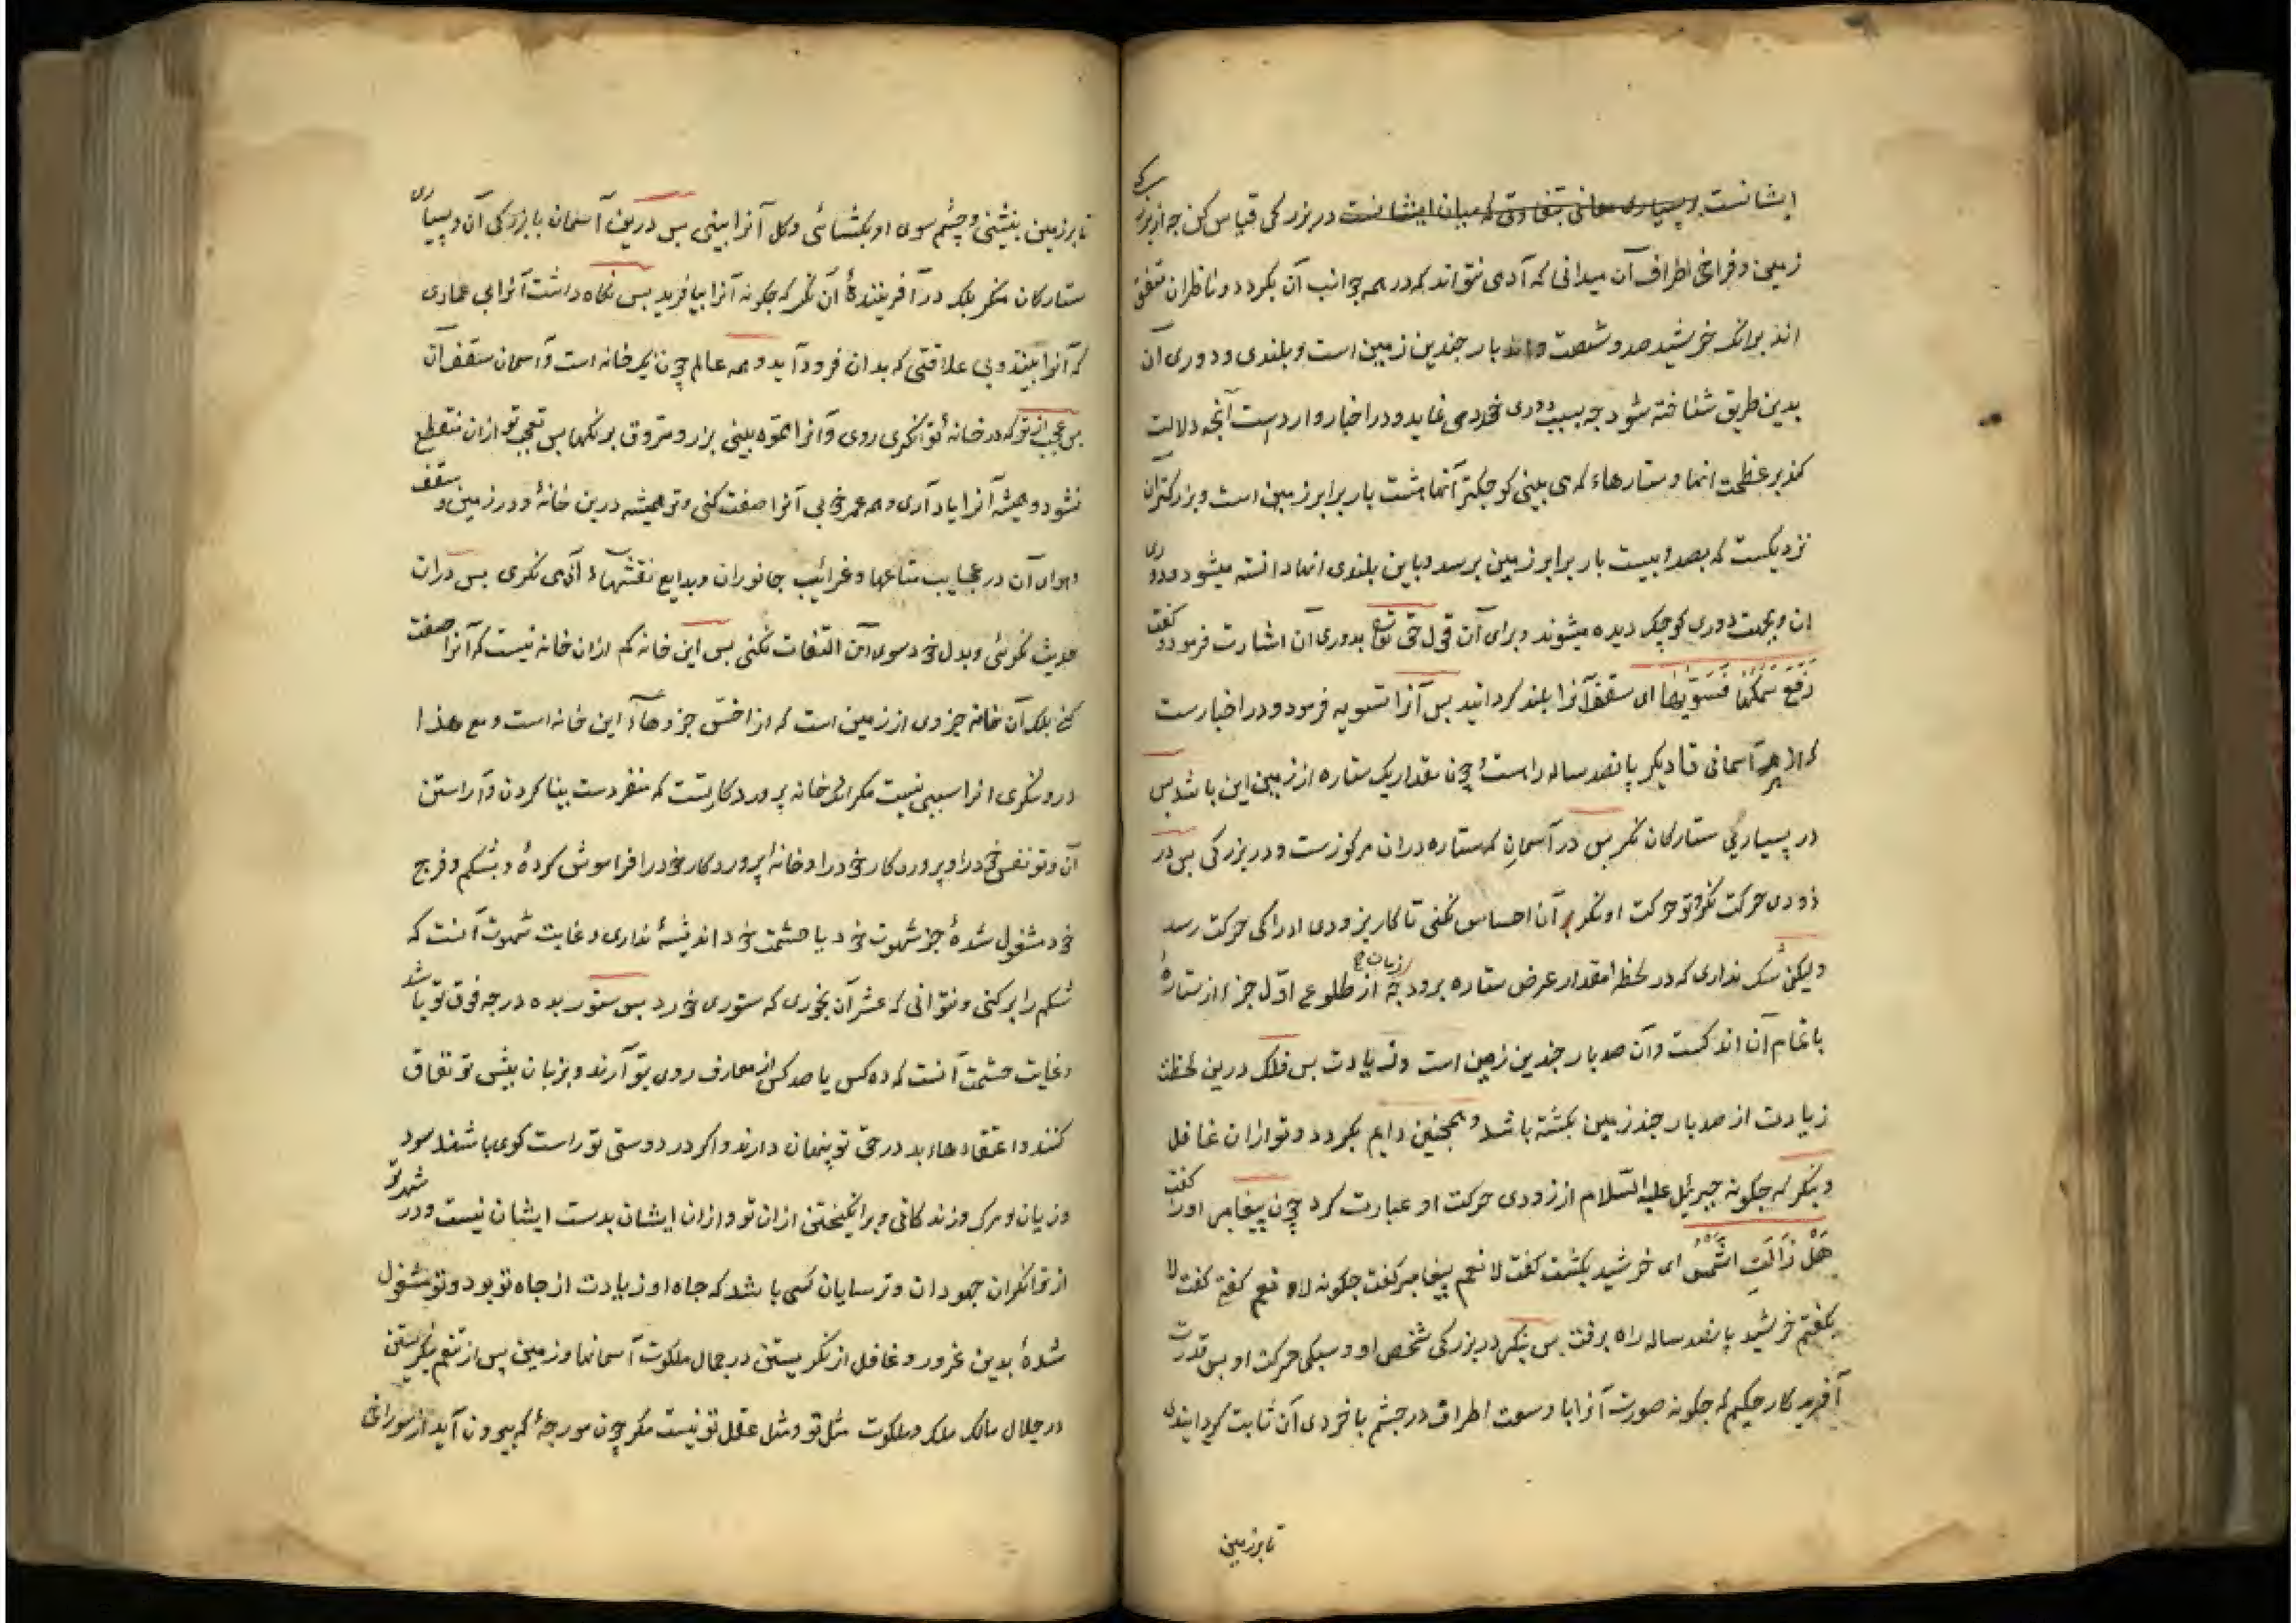 ایشانست و بسیاری معانی تفاوتی که میان ایشانست در بزرگی قیاس کن چه از بزرگی
زمین و فراخی اطراف آن میدانی که آدمی نتواند که در همه جوانب آن بگردد و ناظران متفق
اند برانکه خرشید صد و شصت و اند بار چندین زمین است و بلندی و دوری آن
بدین طریق شناخته شود چه بسبب دوری خرد می نماید و در اخبار وارد است آنچه دلالت
کند بر عظمت انها و ستارهاء که می بینی کوچکتر آنها هشت بار برابر زمین است و بزرکتران
نزدیکست که بصد و بیست بار برابر زمین برسد و باین بلندی انها دانسته میشود و دوری
ان و بجهت دوری کوچک دیده میشوند و برای آن قول حق تعالی بدوری آن اشارت فرمود و گفت
رَفَعَ سَمْکَهَا فَسَوّٰیهَا ای سقف آنرا بلند کردانید بس آنرا تسویه فرمود و در اخبارست
که از هر آسمانی تا دیکر پانصد ساله راست و چون مقدار یک ستاره از زمین این باشد بس
در بسیاری ستارکان نکر بس در آسمان که ستاره دران مرکوزست و در بزرکی بس در
زودی حرکت نکر و تو حرکت او نکر بر آن احساس نکنی تا کار بزودی ادراکی حرکت رسد
ولیکن شک نداری که در لحظه مقدار عرض ستاره برود چه زمان از طلوع اوّل جزء از ستارهٔ
با تمام آن اندکست وآن صد بار چندین زمین است و زیادت بس فلک درین لحظه
زیادت از صد بار چند زمین بکشته باشد و همچنین دایم بکردد و تو ازان غافل
و بنکر که چکونه جبرئیل علیه السّلام از زودی حرکت او عبارت کرد چون پیغامبر اورا گفت
هَلْ زَالَتِ الشَّمْسُ ای خرشید بکشت کفت لا نعم پیغامبر کفت چکونه لا و نعم کفتی کفت لا
بکفتم خرشید پانصد ساله راه برفت بس بنکر در بزرکی شخص او و سبکی حرکت او بس قدرت
آفریدکار حکیم که چکونه صورت آنرا با وسعت اطراف در چشم با خردی آن ثابت کردانیدی
تا بر زمین
تا بر زمین بنشینی و چشم سوی او بکشائی و کل آنرا بینی بس درین آسمان با بزرکی آن و بسیاری
ستارکان منکر بلکه در آفرینندهٔ آن نکر که چکونه آنرا بیافرید بس نکاه داشت آنرا بی عمادی
که آنرا بینند و بی علاقتی که بدان فرود آید و همه عالم چون یکخانه است و آسمان سقف آن
بس عجب از تو که در خانهٔ توانکری روی و آنرا مموه بینی بزر و مزوق برنکها بس تعجب تو ازان منقطع
نشود و همیشه آنرا یاد آری و همه عمر خوبی آنرا صفت کنی و تو همیشه درین خانهٔ و در زمین و سقف
و هوای آن در عجایب متاعها و غرائب جانوران و بدایع نقشهاء آدمی نکری بس دران
حدیث نکوئی و بدل خود سوی آن التفات نکنی بس این خانه کم ازان خانه نیست که آنرا صفت
کنی بلکه آن خانه جزوی از زمین است که از اخس جزوهاء این خانه است و مع هذا
درو ننکری انرا سببی نیست مکر انکه خانه پروردکارتست که منفردست ببنا کردن و آراستن
آن و تو نفس خود را و پروردکار خود را و خانهٔ پروردکار خود را فراموش کردهٔ و بشکم و فرج
خود مشغول شدهٔ جز شهوت خود یا حشمت خود اندیشهٔ نداری و غایت شهوت آنست که
شکم را بر کنی و نتوانی که عشر آن بخوری که ستوری خورد بس ستور بده درجه فوق تو باشد
و غایت حشمت آنست که ده کس یا صد کس از معارف روی بتو آرند و بزبان پیش تو نفاق
کنند و اعتقادهاء بد در حق تو پنهان دارند و اکر در دوستی تو راست کوی باشند سود
و زیان و مرک و زندکانی و برانکیختن ازان تو و ازان ایشان بدست ایشان نیست و در شهر تو
از توانکران جهودان و ترسایان کسی باشد که جاه او زیادت از جاه تو بود و تو مشغول
شدهٔ بدین غرور و غافل از نکریستن در جمال ملکوت آسمانها و زمین پس از تنعم بنکریستن
در جلال مالک ملک و ملکوت مثل تو و مثل عقل تو نیست مکر چون مورچهٔ که بیرون آید از سوراخ